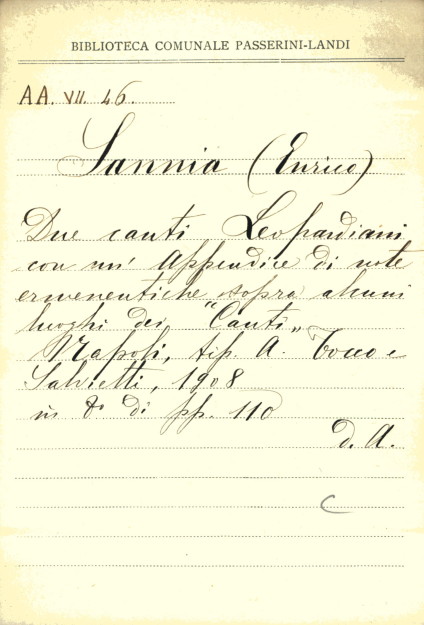 BIBLIOTECA COMUNALE PASSERINI-LANDI
AA. VII. 46.
Sannia (Enrico)
Due canti Leopardiani
con un' Appendice di note
ermeneutiche sopra alcuni
luoghi dei "Canti"
Napoli, tip. A. Tocco e
Salvietti, 1908
in 8° di pp. 110
d. A.
C